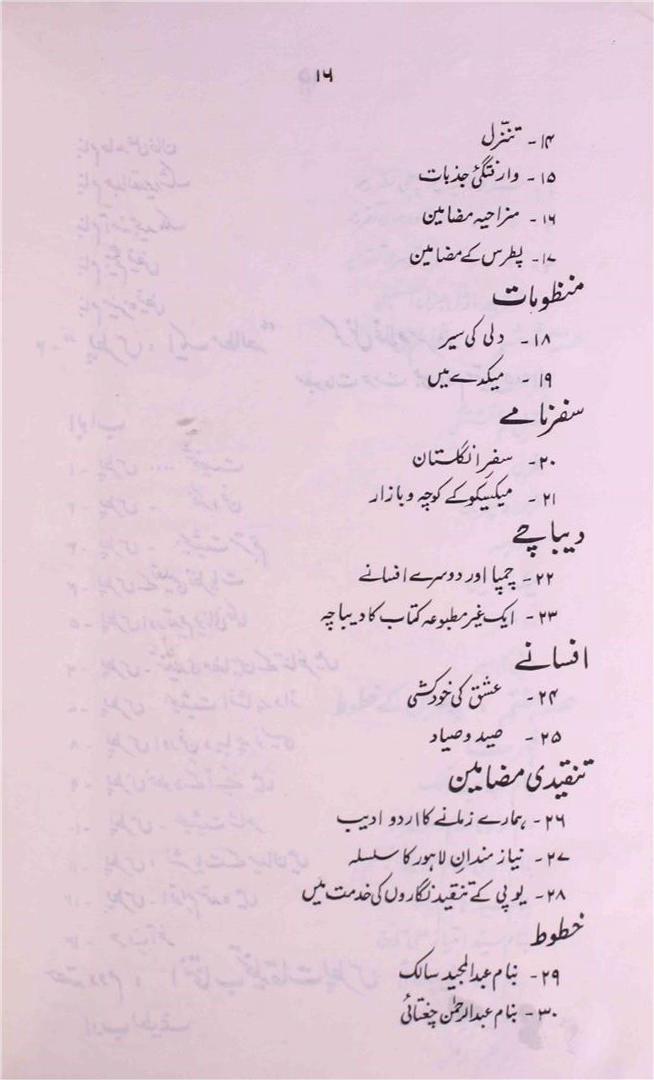 ۱۶
۱۴۔ تنزّل
۱۵۔ وارفتگیٔ جذبات
۱۶۔ مزاحیہ مضامین
۱۷۔ پطرس کے مضامین
منظومات
۱۸۔ دلی کی سیر
۱۹۔ میکدے میں
سفرنامے
۲۰۔ سفرِ انگلستان
۲۱۔ میکسیکو کے کوچہ و بازار
دیباچے
۲۲۔ چمپا اور دوسرے افسانے
۲۳۔ ایک غیر مطبوعہ کتاب کا دیباچہ
افسانے
۲۴۔ عشق کی خودکشی
۲۵۔ صید و صیاد
تنقیدی مضامین
۲۶۔ ہمارے زمانے کا اردو ادیب
۲۷۔ نیاز مندانِ لاہور کا سلسلہ
۲۸۔ یو پی کے تنقید نگاروں کی خدمت میں
خطوط
۲۹۔ بنام عبدالمجید سالک
۳۰۔ بنام عبدالرحمٰن چغتائی